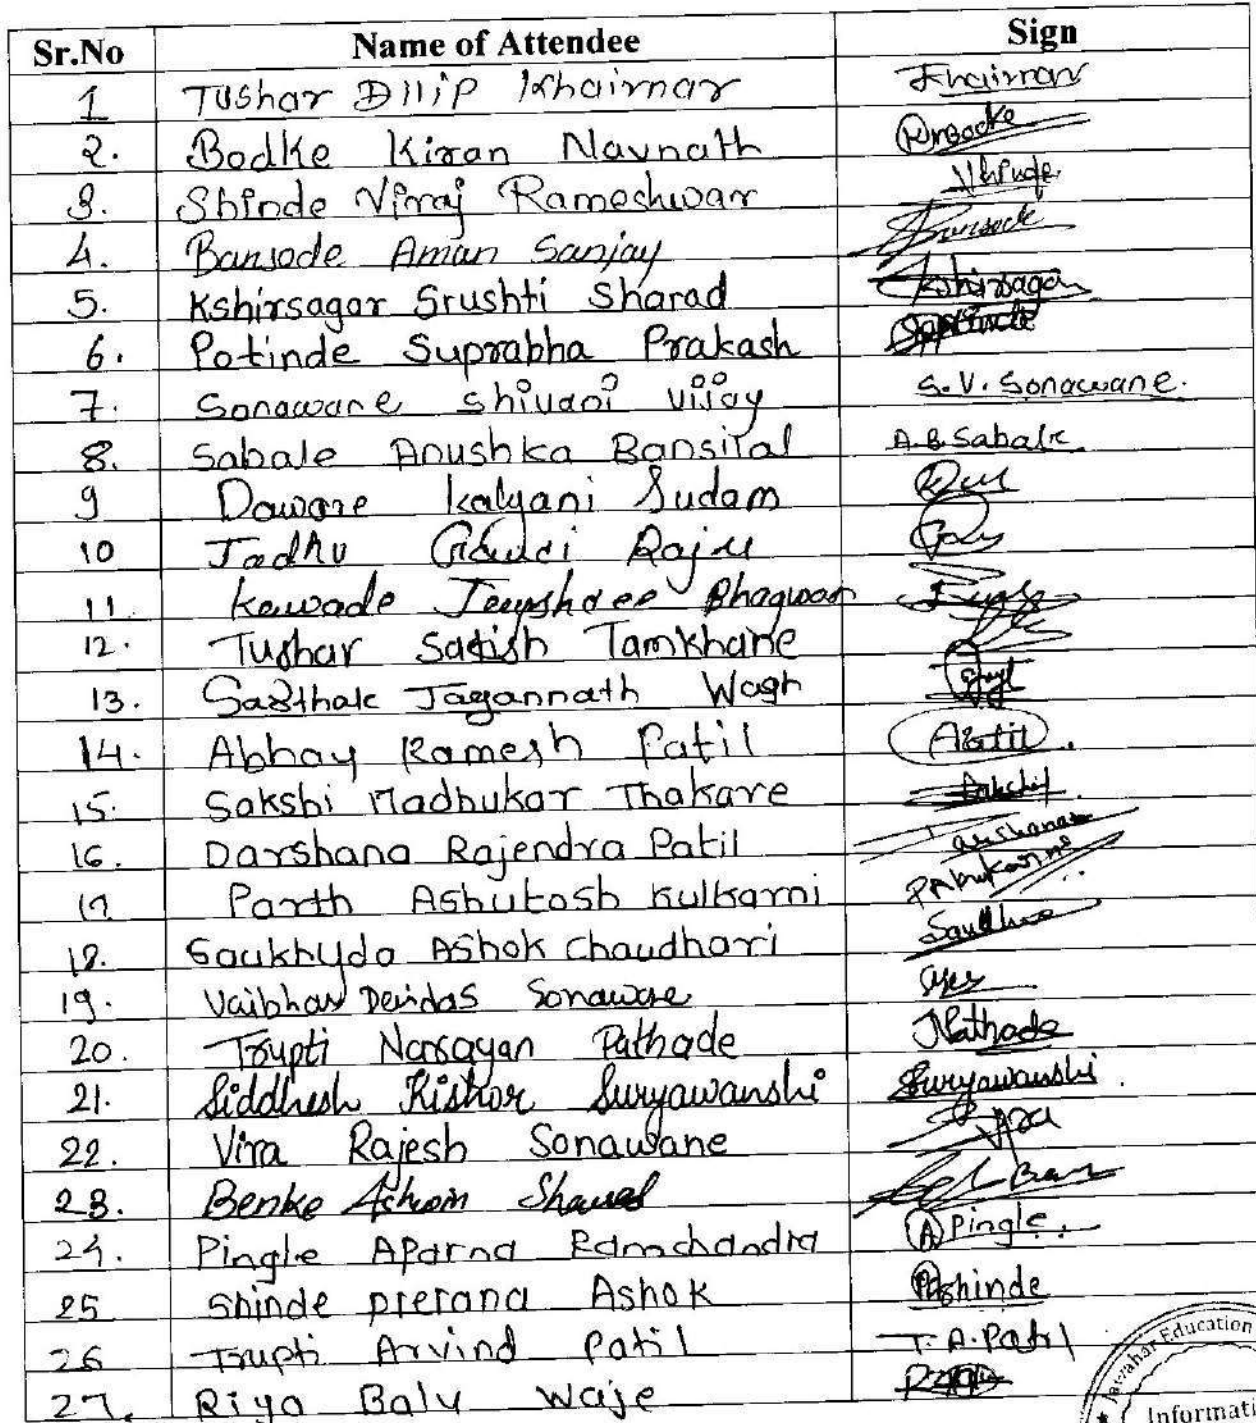 Sr.No Name of Attendee Sign
1 Tushar Dilip Khairnar Khairnar
2. Bodke Kiran Navnath KNBodke
3. Shinde Viraj Rameshwar VShinde
4. Bansode Aman Sanjay Bansode
5. Kshirsagar Srushti Sharad Kshirsagar
6. Potinde Suprabha Prakash
7. Sonawane Shivani Vijay S.V. Sonawane.
8. Sabale Anushka Bansilal A.B.Sabale
9 Daware Kalyani Sudam
10 Raju
11. Kawade Bhagwan
12. Tushar Satish Tamkhane
13. Sarthak Jagannath Wagh
14. Abhay Ramesh Patil APatil.
15. Sakshi Madhukar Thakare Sakshi.
16. Darshana Rajendra Patil Darshana
17 Parth Ashutosh Kulkarni PAKulkarni
18. Saukhyda Ashok Chaudhari
19. Vaibhav Devidas Sonawane
20. Trupti Narayan Pathade Pathade
21. Siddhesh Kishor Suryawanshi Suryawanshi.
22. Vira Rajesh Sonawane
23. Benke Ashwin
24. Pingle Aparna Ramchandra A Pingle.
25 Shinde prerana Ashok PAshinde
26 Trupti Arvind Patil T.A.Patil
27. Riya Balu Waje
Jawahar Education
Informati